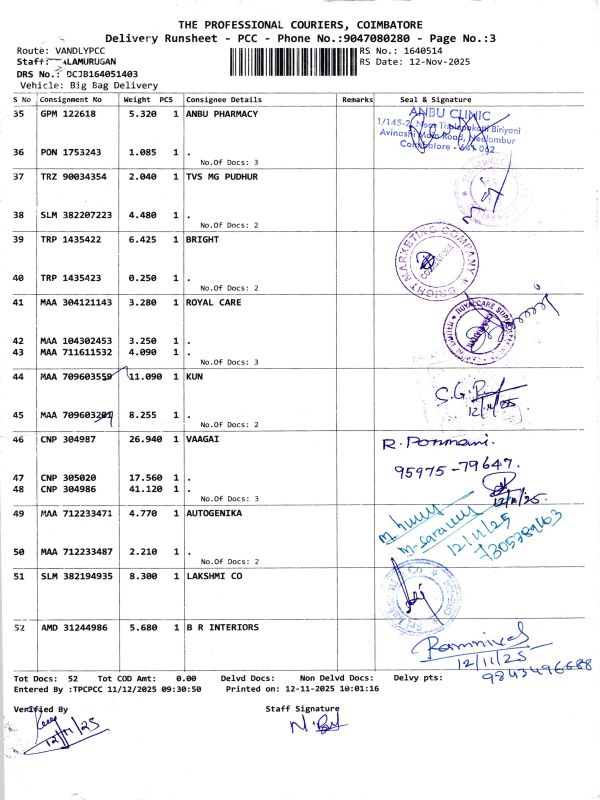 THE PROFESSIONAL COURIERS, COIMBATORE
Delivery Runsheet - PCC - Phone No.:9047080280 - Page No.:3
Route: VANDLYPCC
RS No.: 1640514
Staff: ALAMURUGAN
RS Date: 12-Nov-2025
DRS No.: DCJB164051403
Vehicle: Big Bag Delivery
S No Consignment No Weight PCS Consignee Details Remarks Seal & Signature
35 GPM 122618 5.320 1 ANBU PHARMACY
ANBU CLINIC
1/145-2, Near Thalapakatti Biriyani
Avinashi Main Road, Neelambur
Coimbatore - 641 062
36 PON 1753243 1.085 1 .
No.Of Docs: 3
37 TRZ 90034354 2.040 1 TVS MG PUDHUR
38 SLM 382207223 4.480 1 .
No.Of Docs: 2
39 TRP 1435422 6.425 1 BRIGHT
BRIGHT MARKETING COMPANY
COIMBATORE
40 TRP 1435423 0.250 1 .
No.Of Docs: 2
41 MAA 304121143 3.280 1 ROYAL CARE
42 MAA 104302453 3.250 1 .
43 MAA 711611532 4.090 1 .
No.Of Docs: 3
44 MAA 709603559 11.090 1 KUN
12/11/25
45 MAA 709603201 8.255 1 .
No.Of Docs: 2
46 CNP 304987 26.940 1 VAAGAI
R. Ponmani.
95975-79647.
47 CNP 305020 17.560 1 .
48 CNP 304986 41.120 1 .
12/11/25.
No.Of Docs: 3
49 MAA 712233471 4.770 1 AUTOGENIKA
12/11/25
50 MAA 712233487 2.210 1 .
No.Of Docs: 2
51 SLM 382194935 8.300 1 LAKSHMI CO
52 AMD 31244986 5.680 1 B R INTERIORS
12/11/25
9843496688
Tot Docs: 52 Tot COD Amt: 0.00 Delvd Docs: Non Delvd Docs: Delvy pts:
Entered By :TPCPCC 11/12/2025 09:30:50 Printed on: 12-11-2025 10:01:16
Verified By Staff Signature
12/11/25